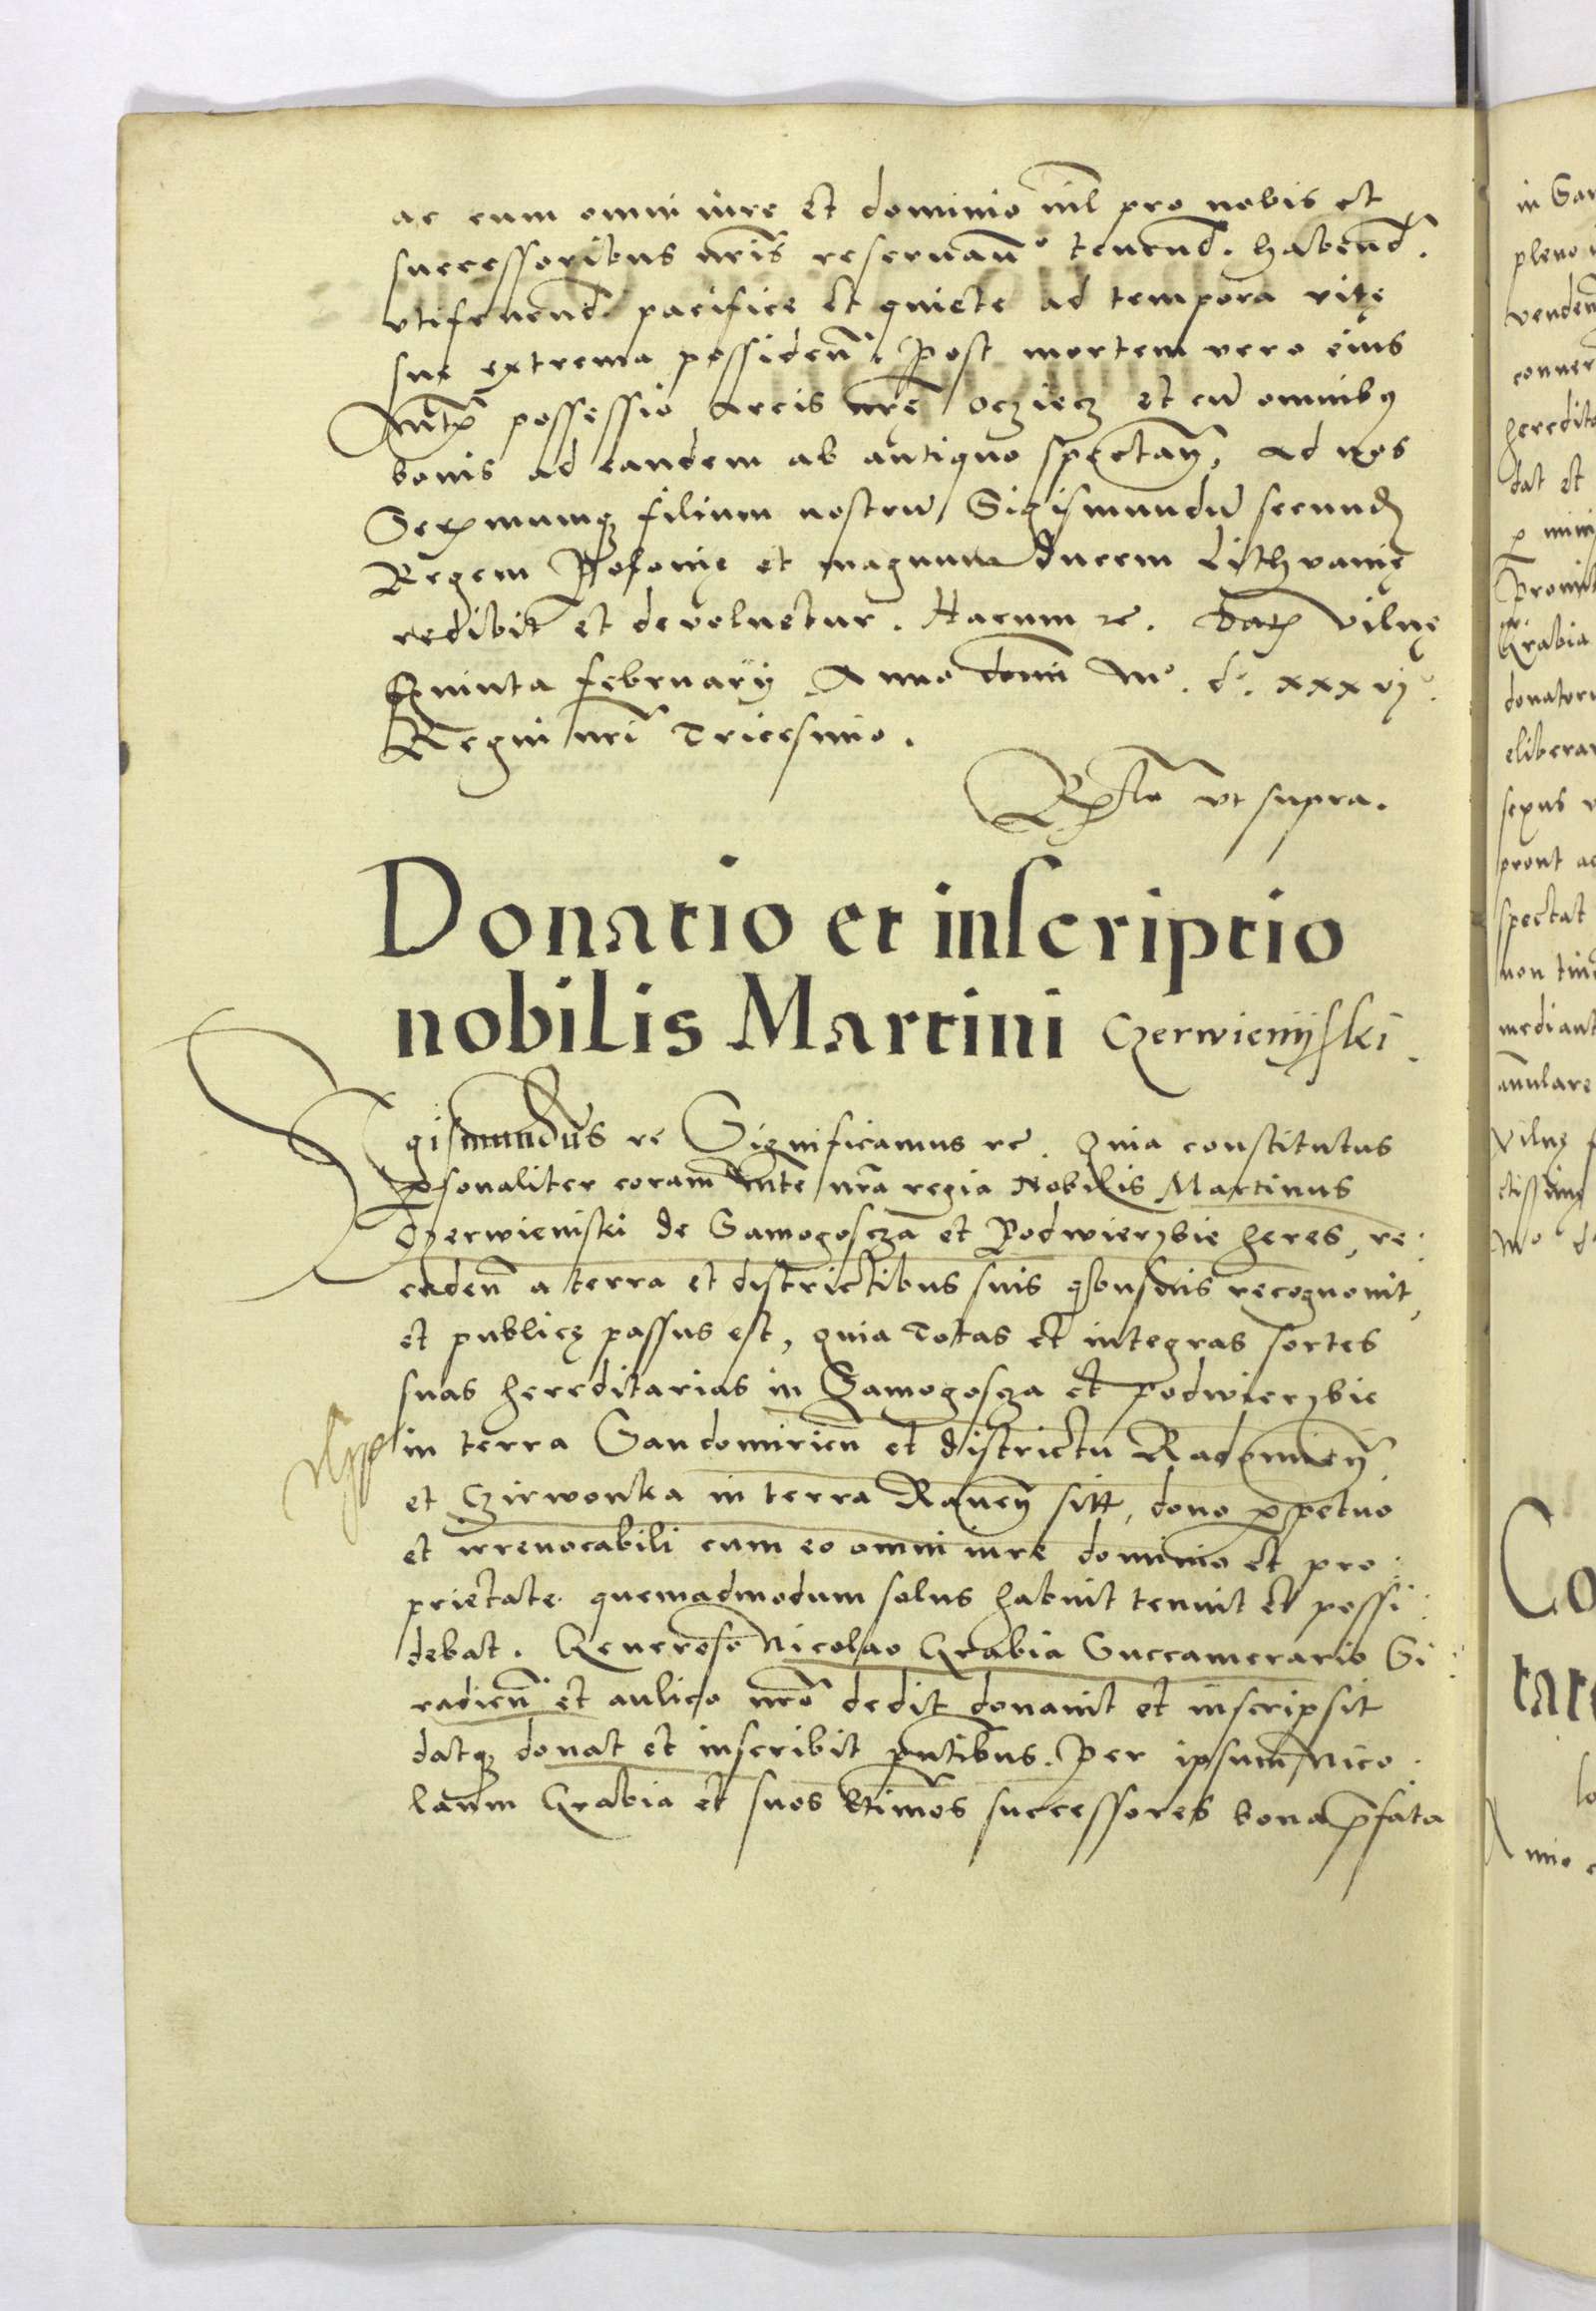 ac cum omni iure et dominio nil pro nobis et
successoribus nris reseruan. tenend. habend.
vtifruend. pacifice et quiete ad tempora vitę
sue extrema possiden. Post mortem vero eius
possessio arcis nrę Ocziecz et cu omnibus
bonis ad eandem ab antiquo spectan, ad nos
Sermumq filium nostru Sigismundu secund
Regem Polonię et magnum ducem Lithvanię
redibit et devoluetur. Harum rc. Dat Vilnę
Quinta februarij Anno domi Mo. do. xxxvjo.
Regni nri Tricesimo.
Rlo vt supra.
Donatio et inscriptio
nobilis Martini Czerwienijski.
Sigismundus rc Significamus rc. Quia constitutus
psonaliter coram Mte nra regia Nobilis Martinus
Czerwieniski de Samogoscza et Podwierzbie heres, re
ceden a terra et districtibus suis recognouit,
et publicę passus est, quia totas et integras sortes
suas hereditarias in Samogoscza et Podwierzbie
in terra Sandomirien et districtu Radomien
et Czirwonka in terra Rauen sitt, dono ppetuo
et irreuocabili cum eo omni iure dominio et pro
prietate quemadmodum solus habuit tenuit et possi
debat. Generoso Nicolao Grabia Succamerario Si
radien et aulico nro dedit donauit et inscripsit
datq donat et inscribit pntibus. Per ipsum Nico
laum Grabia et suos ltimos successores bona pfata
in San
pleno i
venden
conuer
heredita
dat et
p mini
Grabia
donatori
eliberar
sexus v
prout ac
spectat
non tim
mediant
annulare
Vilnę f
Co
tar